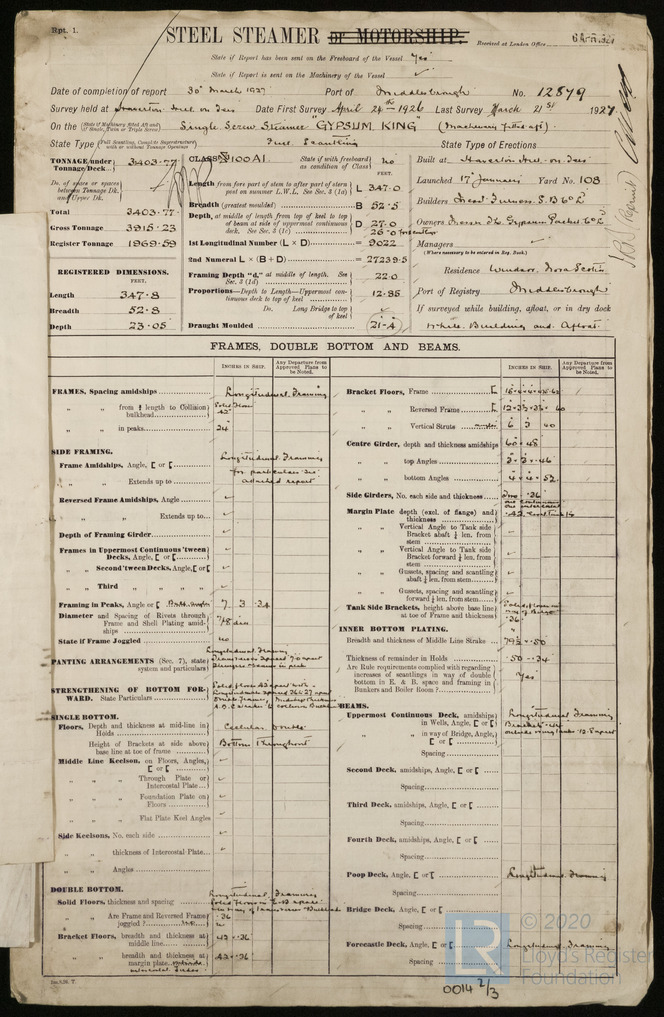 Rpt. 1.
STEEL STEAMER or MOTORSHIP.
Received at London Office
6 APR. 1927
State if Report has been sent on the Freeboard of the Vessel Yes
State if Report is sent on the Machinery of the Vessel
Date of completion of report 30th March 1927 Port of Middlesbrough No. 12879
Survey held at Haverton Hill on Tees Date First Survey April 24th 1926 Last Survey March 21st 1927
On the (State if Machinery fitted Aft and if Single, Twin or Triple Screw) Single Screw Steamer "GYPSUM KING" (Machinery fitted aft)
State Type (Full Scantling, Complete Superstructure with or without Tonnage Openings) Full Scantling State Type of Erections
TONNAGE under Tonnage Deck 3403.77
Do. of space or spaces between Tonnage Dk. and Upper Dk.
Total 3403.77
Gross Tonnage 3915.23
Register Tonnage 1969.59
REGISTERED DIMENSIONS.
FEET.
Length 347.8
Breadth 52.8
Depth 23.05
CLASS 100A1. State if with freeboard as condition of Class No
FEET.
Length from fore part of stem to after part of stern post on summer L.W.L. See Sec. 3 (1a) L 347.0
Breadth (greatest moulded) B 52.5
Depth, at middle of length from top of keel to top of beam at side of uppermost continuous deck. See Sec. 3 (1c) D 27.0
26.0
1st Longitudinal Number (L × D) = 9022
2nd Numeral L × (B + D) = 27239.5
Framing Depth "d," at middle of length. See Sec. 3 (1d) 22.0
Proportions—Depth to Length—Uppermost continuous deck to top of keel 12.85
Do. Long Bridge to top of keel
Draught Moulded 21-4
Built at Haverton Hill on Tees
Launched 17th January Yard No. 108
Builders Messrs Furness S.B. Co Ld
Owners Messrs The Gypsum Packet Co Ld
Managers
(Where necessary to be entered in Reg. Book.)
Residence Windsor, Nova Scotia
Port of Registry Middlesbrough
If surveyed while building, afloat, or in dry dock
While Building and Afloat
FRAMES, DOUBLE BOTTOM AND BEAMS.
INCHES IN SHIP.
Any Departure from Approved Plans to be Noted.
FRAMES, Spacing amidships Longitudinal Framing
" " from ⅕ length to Collision bulkhead
" " in peaks 24
SIDE FRAMING.
Frame Amidships, Angle, [ or [ Longitudinal Framing
for particulars see
" " Extends up to attached report
Reversed Frame Amidships, Angle
" " Extends up to
Depth of Framing Girder
Frames in Uppermost Continuous 'tween Decks, Angle, [ or [
" " Second 'tween Decks, Angle, [ or [
" " Third " "
Framing in Peaks, Angle or [ Bulb Angle 7 3 .34
Diameter and Spacing of Rivets through Frame and Shell Plating amidships 7/8 dia
State if Frame Joggled No
PANTING ARRANGEMENTS (Sec. 7), state system and particulars
STRENGTHENING OF BOTTOM FORWARD. State Particulars
SINGLE BOTTOM.
Floors, Depth and thickness at mid-line in Holds Cellular Double
Height of Brackets at side above base line at toe of frame Bottom Throughout
Middle Line Keelson, on Floors, Angles, [ or [
" " Through Plate or Intercostal Plate
" " Foundation Plate on Floors
" " Flat Plate Keel Angles
Side Keelsons, No. each side
" " thickness of Intercostal Plate
" " Angles
DOUBLE BOTTOM.
Longitudinal Framing
Solid Floors, thickness and spacing
" " Are Frame and Reversed Frame joggled? .36
Bracket Floors, breadth and thickness at middle line 42 .36
" " breadth and thickness at margin plate 42 .36
Bracket Floors, Frame
" " Reversed Frame
" " Vertical Struts 6 3 .40
Centre Girder, depth and thickness amidships 60 .48
" " top Angles 3 3 .46
" " bottom Angles 4 4 .52
Side Girders, No. each side and thickness Two .36
Margin Plate depth (excl. of flange) and thickness
" " Vertical Angle to Tank side Bracket abaft ⅕ len. from stem
" " Vertical Angle to Tank side Bracket forward ⅕ len. from stem
" " Gussets, spacing and scantling abaft ⅕ len. from stem
" " Gussets, spacing and scantling forward ⅕ len. from stem
Tank Side Brackets, height above base line at toe of Frame and thickness .36
INNER BOTTOM PLATING.
Breadth and thickness of Middle Line Strake 79½ .50
Thickness of remainder in Holds .50 .34
Are Rule requirements complied with regarding increases of scantlings in way of double bottom in E. & B. space and framing in Bunkers and Boiler Room? Yes
BEAMS.
Uppermost Continuous Deck, amidships in Wells, Angle, [ or [ Longitudinal Framing
" " in way of Bridge, Angle, [ or [
Spacing
Second Deck, amidships, Angle, [ or [
Spacing
Third Deck, amidships, Angle, [ or [
Spacing
Fourth Deck, amidships, Angle, [ or [
Spacing
Poop Deck, Angle, [ or [ Longitudinal Framing
Spacing
Bridge Deck, Angle, [ or [
Spacing
Forecastle Deck, Angle, [ or [ Longitudinal Framing
Spacing
© 2020
LR
Lloyd's Register
Foundation
0014 2/3